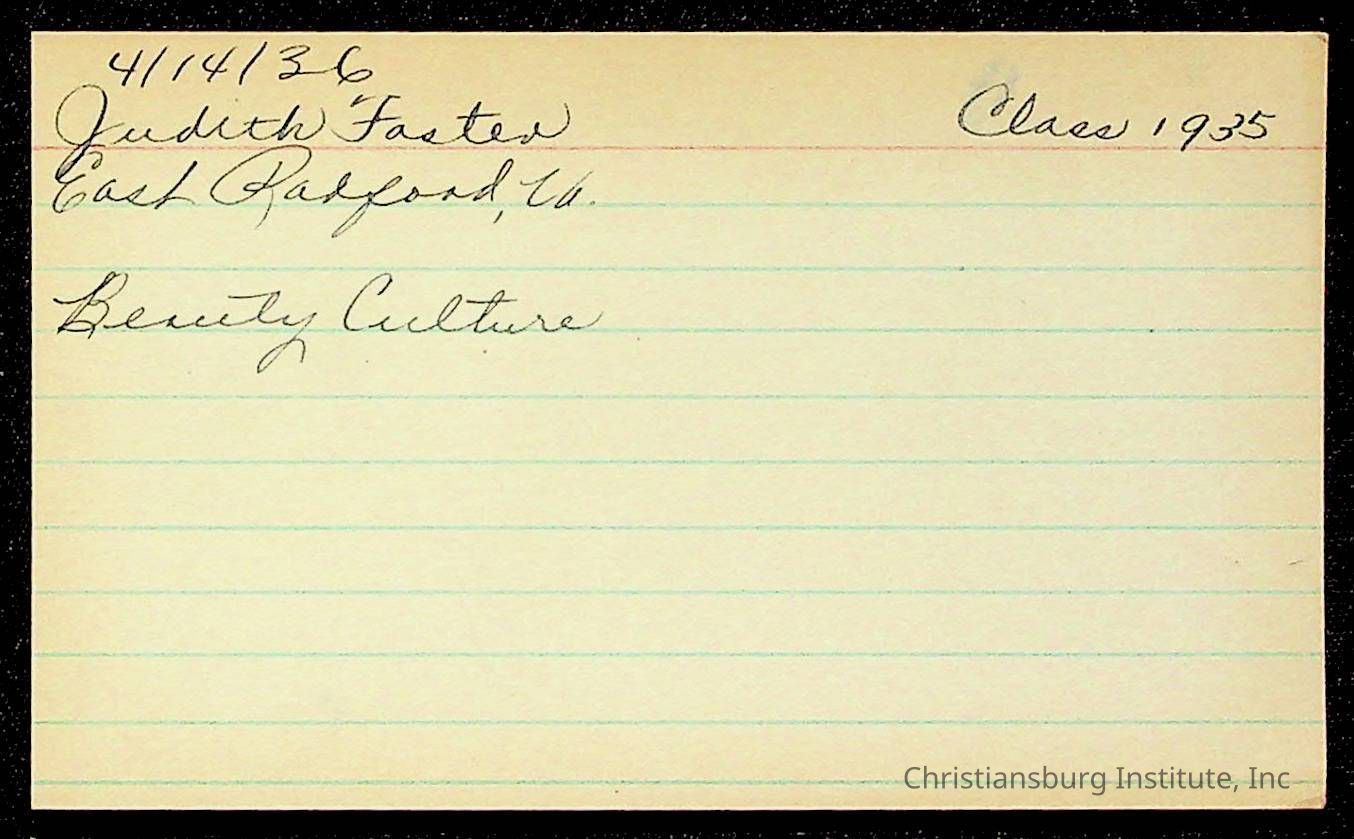 4/14/36
Judith Foster Class 1935
East Radford, Va.
Beauty Culture
Christiansburg Institute, Inc